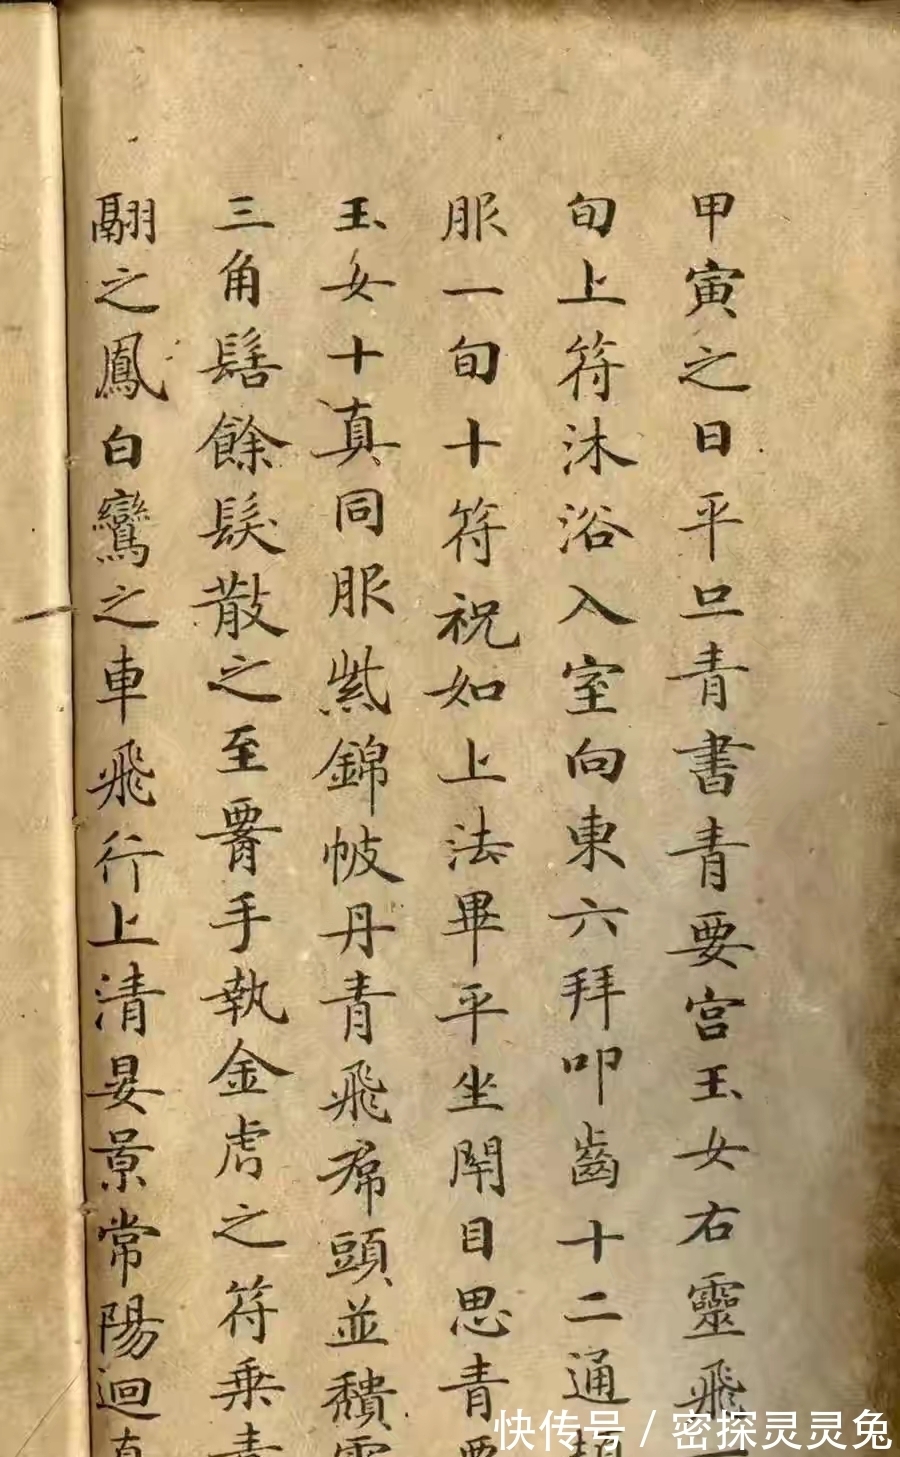 甲寅之日平旦青書青要宮玉女右靈飛一
旬上符沐浴入室向東六拜叩齒十二通頓
服一旬十符祝如上法畢平坐閉目思青要
玉女十真同服紫錦帔丹青飛帬頭並穨雲
三角髻餘髮散之至要手執金虎之符乘青
翮之鳳白鸞之車飛行上清晏景常陽迴真
快传号/密探灵灵兔